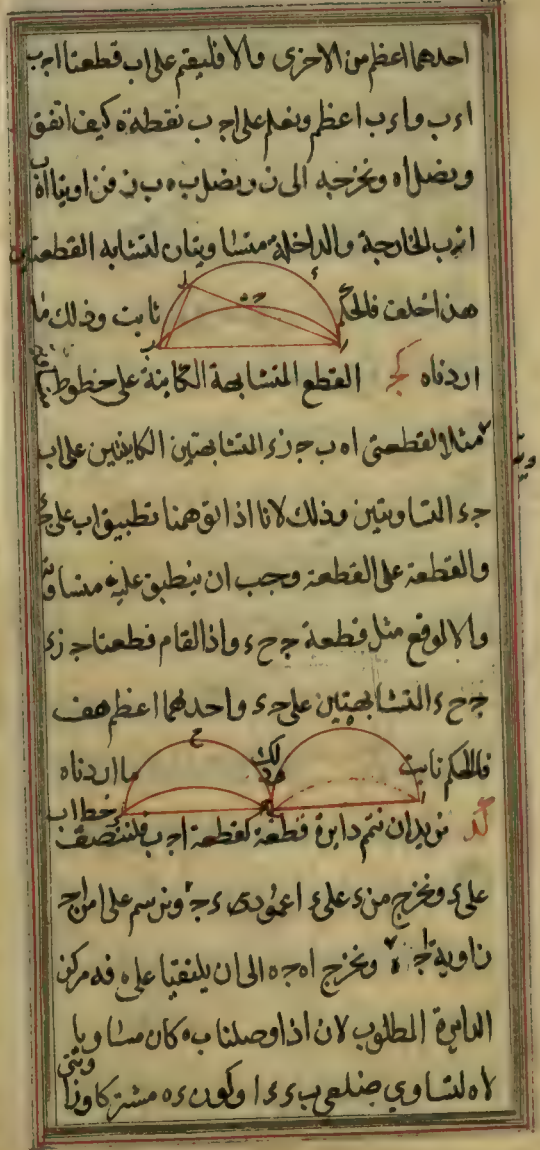 احدهما اعظم من الاخرى والا فليقم على اب قطعتا اجب
اءب واءب اعظم ونعلم على اجب نقطة ه كيف اتفق
ونصل اه ونخرجه الى ن ونصل به بن فزاويتا اهب
انب الخارجة والداخلة متساويتان لتشابه القطعتين
هذا خلف فالحكم ثابت وذلك ما
اردناه كج القطع المتشابهة الكائنة على خطوط
مثلا لقطعتى اهب جزء المتشابهتين الكاينتين على اب
جء المتساويتين وذلك لانا اذا توهمنا تطبيق اب على جء
والقطعة على القطعة وجب ان ينطبق عليه متساوية
والا لوقع مثل قطعة جحء واذا لقام قطعتا جزء
جحء المتشابهتين على جء واحدهما اعظم هف
فالحكم ثابت وذلك ما اردناه
كد نريد ان نتم دايرة قطعة كقطعة اجب فلننصف خط اب
على ء ونخرج من ء على ء ا عمودى ءج ونرسم على ا من اج
زاوية ونخرج اه جه الى ان يلتقيا على ه فه مركز
الدايرة المطلوب لان اذا وصلنا به كان مساويا
لاه لتساوي ضلعى بء ءا وكون ءه مشتركا وزاويتى